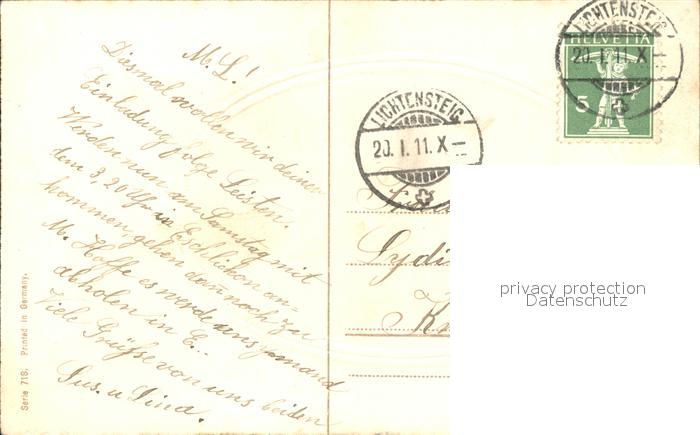 M. L!
Diesmal wollen wir deiner
Einladung folge Leisten.
Werden nun am Samstag mit
dem 3,20 Uhr in Eschlikon an-
kommen, gehen dann noch zu
M. Hoffe es werde uns jemand
abholen in E..
Viele Grüsse von uns beiden
Gus. u Lina.
Serie 718. Printed in Germany.
LICHTENSTEIG
20. I. 11. X
LICHTENSTEIG
20. I. 11. X
HELVETIA
5
Lydi
Kr
privacy protection
Datenschutz